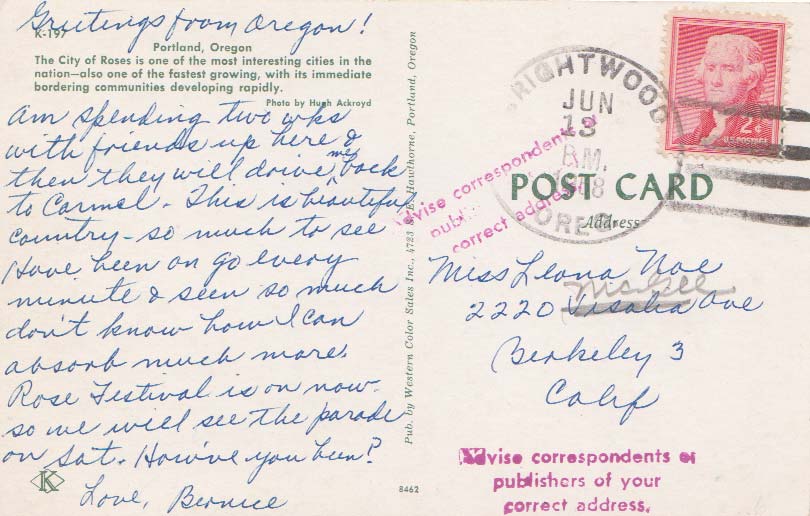 Greetings from Oregon!
K-197
Portland, Oregon
The City of Roses is one of the most interesting cities in the
nation—also one of the fastest growing, with its immediate
bordering communities developing rapidly.
Photo by Hugh Ackroyd
am spending two wks
with friends up here &
then they will drive me back
to Carmel. This is beautiful
country - so much to see
Have been on go every
minute & seen so much
don't know how I can
absorb much more.
Rose Festival is on now.
so we will see the parade
on Sat. How've you been?
Love, Bernice
K
8462
Pub. by Western Color Sales Inc., 4723 S.E. Hawthorne, Portland, Oregon
BRIGHTWOOD
JUN
13
OREG.
2¢
U.S. POSTAGE
Advise correspondents or
publishers
correct address.
POST CARD
Address
Miss Leona Noe
McGee
2220 Visalia Ave
Berkeley 3
Calif
Advise correspondents or
publishers of your
correct address.